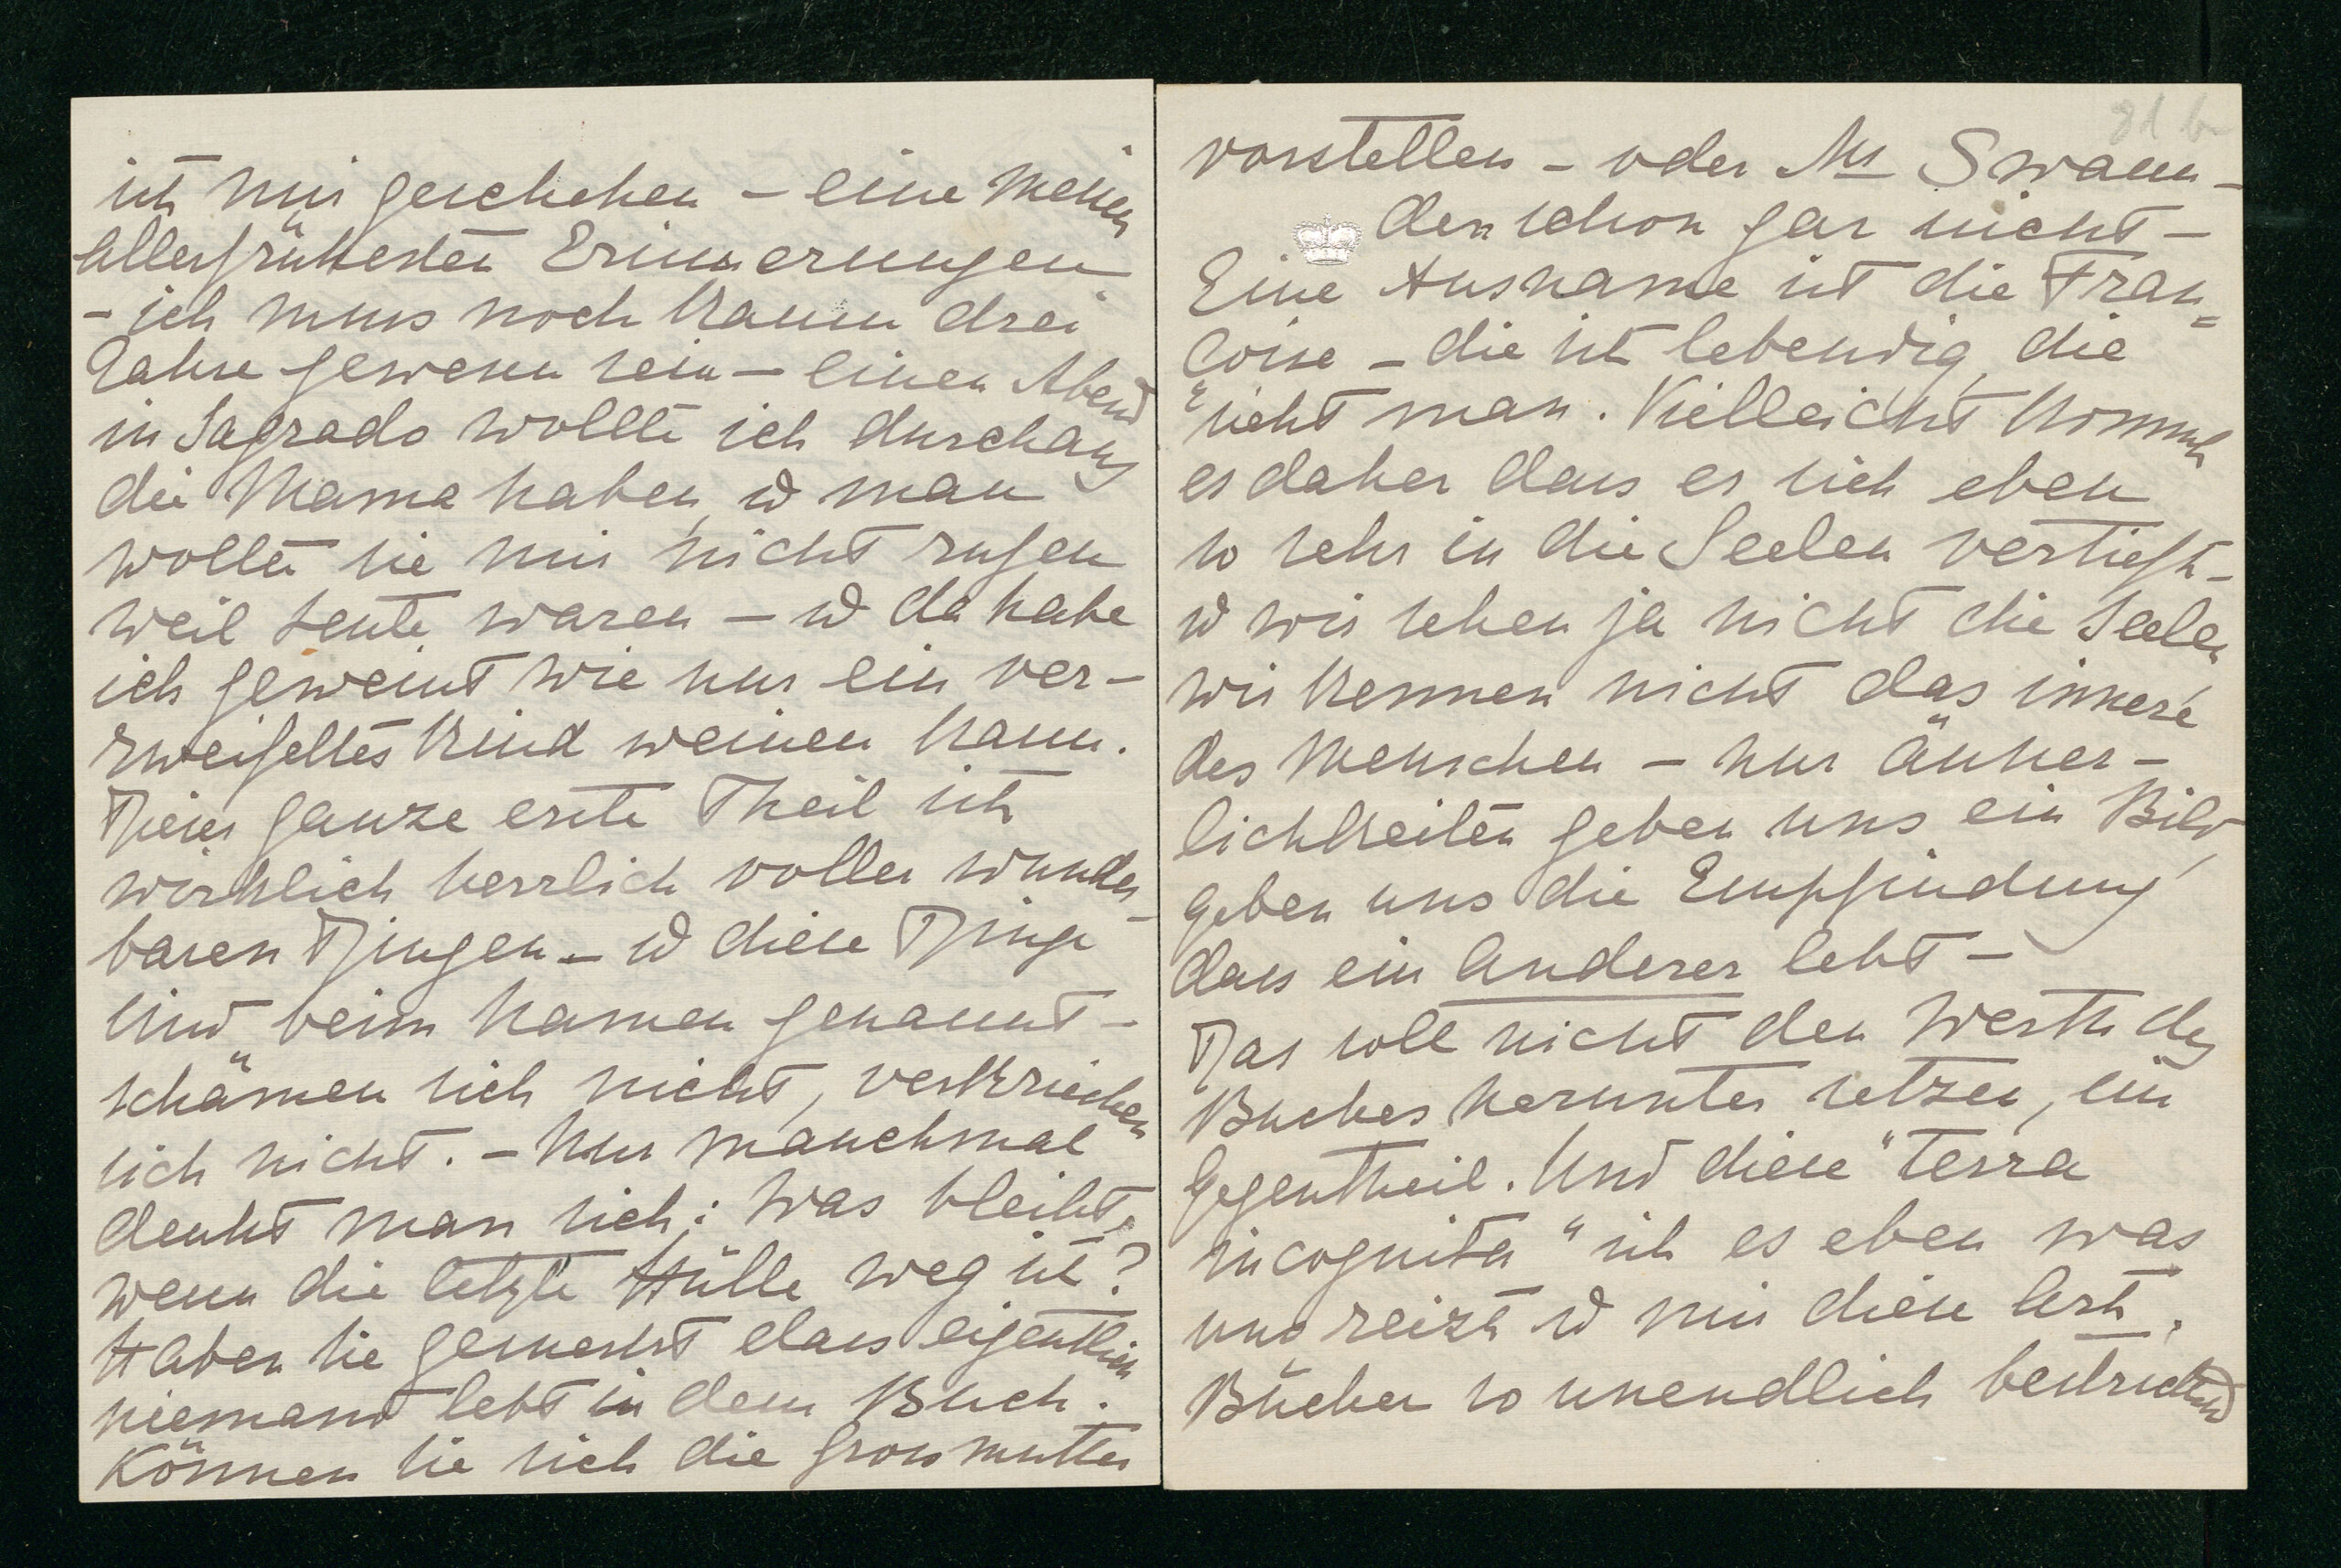 ist mir geschehen – eine meiner
allerfrühesten Erinnerungen
– ich muss noch kaum drei
Jahre gewesen sein – einen Abend
in Sagrado wollte ich durchaus
die Mama haben, u man
wollte sie mir nicht rufen
weil Leute waren – u da habe
ich geweint wie nur ein ver-
zweifeltes Kind weinen kann.
Dieser ganze erste Theil ist
wirklich herrlich voller wunder-
baren Dingen – u diese Dinge
sind beim Namen genannt –
schämen sich nicht, verkriechen
sich nicht. – Nur manchmal
denkt man sich: was bleibt,
wenn die letzte Hülle weg ist?
Haben sie gemerkt dass eigentlich
niemand lebt in dem Buch.
Können sie sich die Grossmutter
81 b
vorstellen – oder Mr Swann –
den schon gar nicht –
Eine Ausname ist die Fran=
coise – die ist lebendig, die
"sieht man. Vielleicht kommt
es daher dass er sich eben
so sehr in die Seelen vertieft –
u wir sehen ja nicht die Seelen
wir kennen nicht das innere
des Menschen – nur äusser-
lichkeiten geben uns ein Bild,
geben uns die Empfindung
dass ein Anderer lebt –
Das soll nicht den Werth des
Buches herunter setzen, im
Gegentheil. Und diese "terra
incognita" ist es eben was
uns reizt u mir diese Art
Bücher so unendlich bestrickend